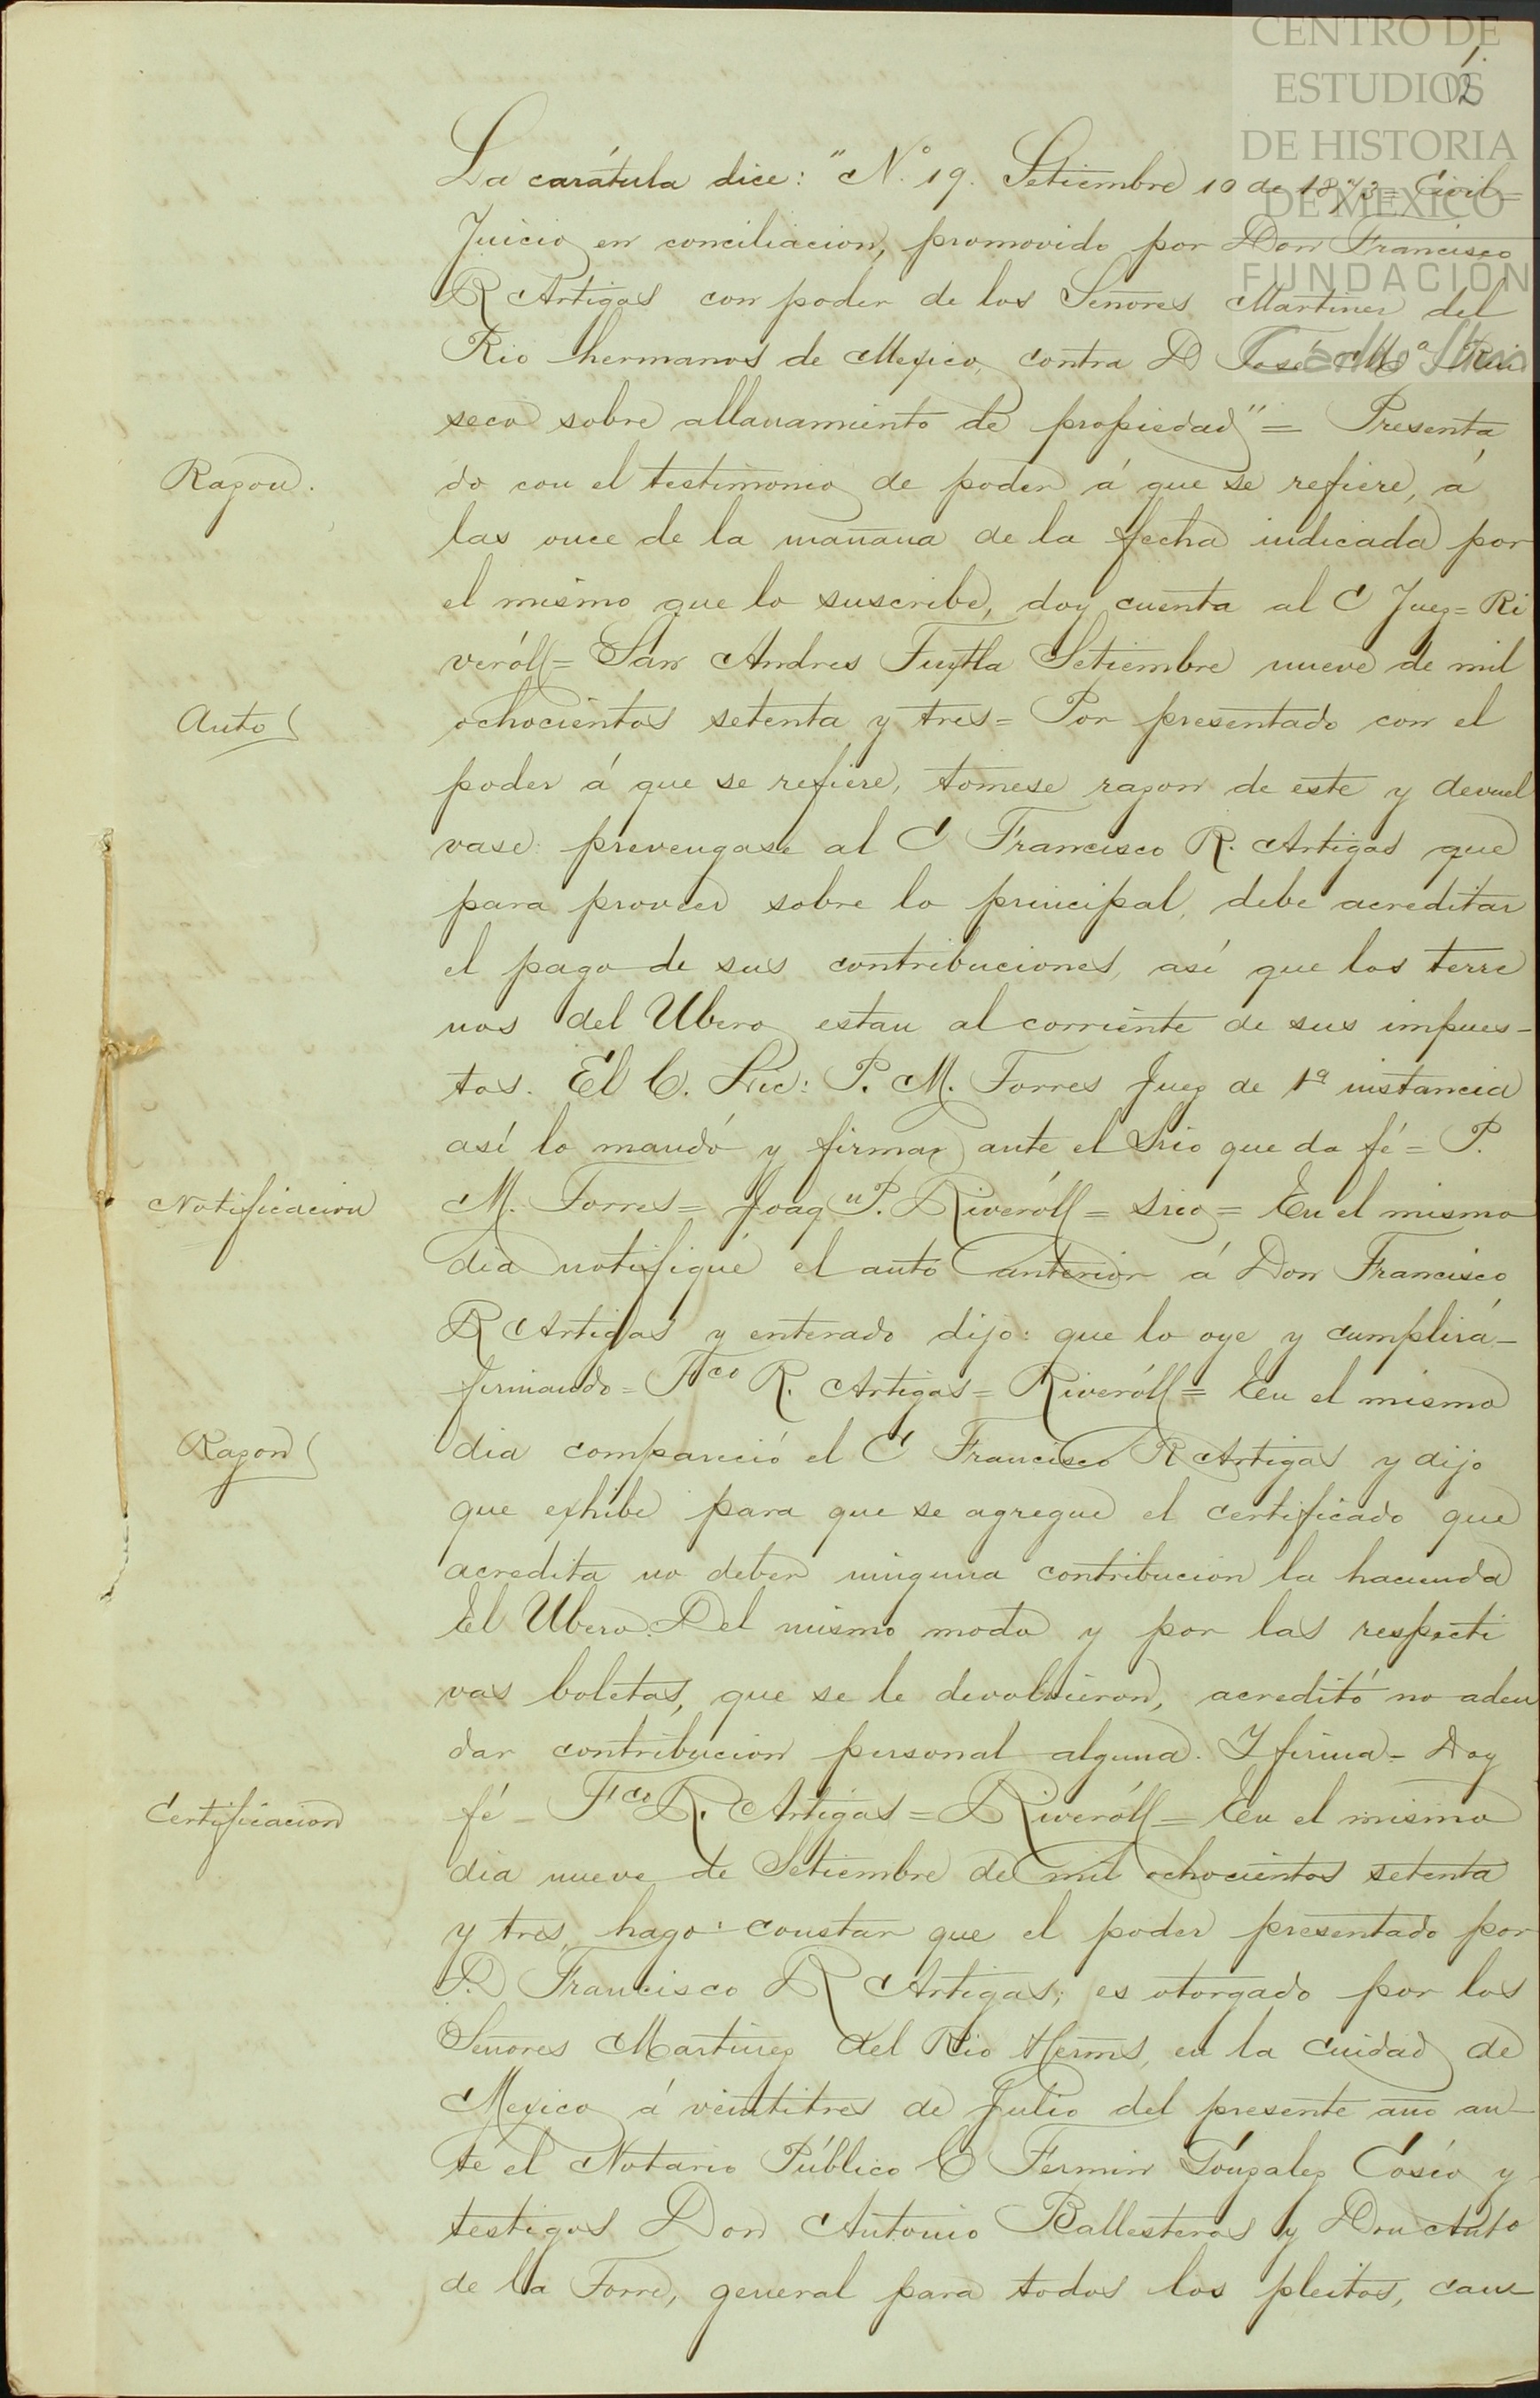 CENTRO DE
ESTUDIOS
DE HISTORIA
DE MEXICO
FUNDACIÓN
Carlos Slim
1.
12
La carátula dice: "N.° 19. Setiembre 10 de 1873 = Civil =
Juicio en conciliacion, promovido por Don Francisco
R Artigas con poder de los Señores Martinez del
Rio hermanos de Mexico, contra D José Mª
seco sobre allanamiento de propiedad" = Presenta
Razon.
do con el testimonio de poder á que se refiere, á
las once de la mañana de la fecha indicada por
el mismo que lo suscribe, doy cuenta al C Juez = Ri
veróll = San Andres Tuxtla Setiembre nueve de mil
Auto
ochocientos setenta y tres = Por presentado con el
poder á que se refiere, tomese razon de este y devuel
vase: prevengase al C Francisco R. Artigas que
para proveer sobre lo principal, debe acreditar
el pago de sus contribuciones, así que los terre
nos del Ubero estan al corriente de sus impues-
tos. El C. Lic: P. M. Torres Juez de 1ª instancia
así lo mandó y firma, ante el Srio que da fé = P.
Notificacion
M. Torres = Joaqn P. Riveróll = Srio = En el mismo
dia notifiqué el auto anterior á Don Francisco
R Artigas y enterado dijo: que lo oye y cumplirá -
firmando = Fco R. Artigas = Riveróll = En el mismo
Razon
dia compareció el C Francisco R Artigas y dijo
que exhibe para que se agregue el certificado que
acredita no deber ninguna contribucion la hacienda
El Ubero. Del mismo modo y por las respecti
vas boletas, que se le devolvieron, acreditó no adeu
dar contribucion personal alguna. Y firma = Doy
Certificacion
fé - Fco R. Artigas = Riveróll = En el mismo
dia nueve de Setiembre de mil ochocientos setenta
y tres, hago constar que el poder presentado por
D. Francisco R Artigas; es otorgado por los
Señores Martinez del Rio Herms, en la ciudad de
Mexico á veintitres de Julio del presente año an-
te el Notario Público C Fermin Gónzalez Cósio y
testigos Don Antonio Ballesteros y Don Anto
de la Torre, general para todos los pleitos, cau-